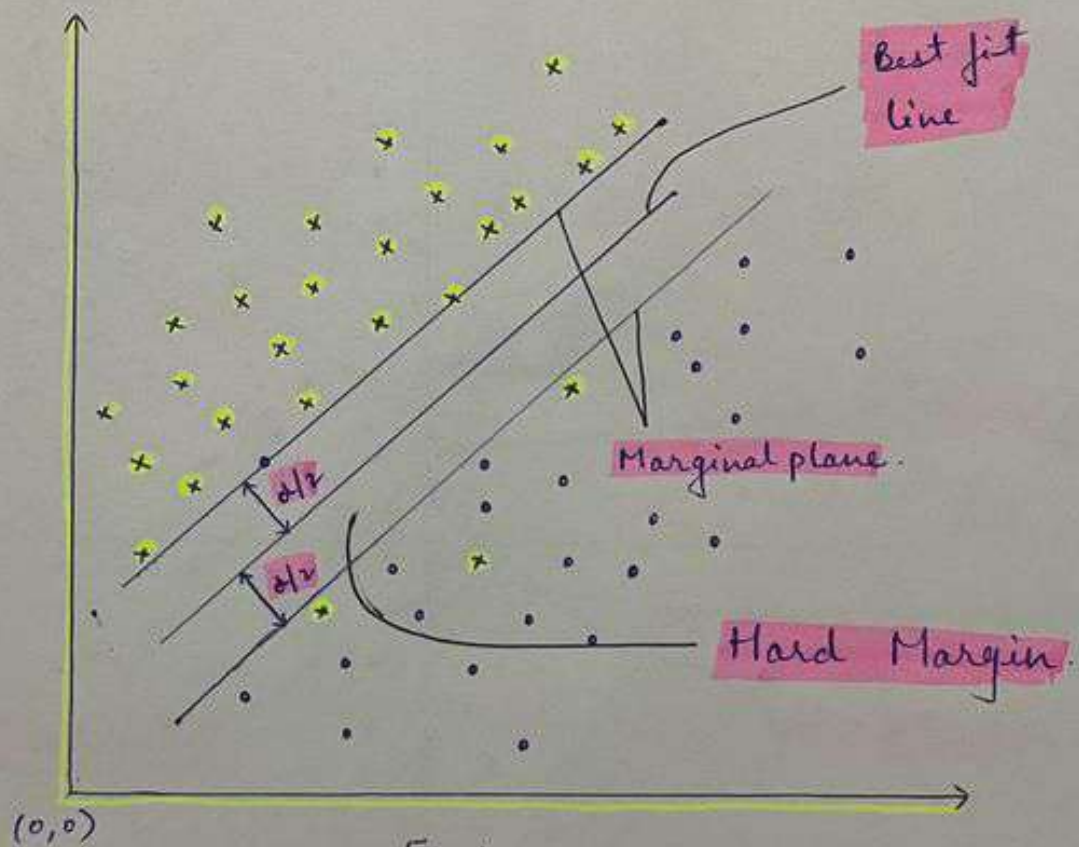 Best fit
line
Marginal plane.
d/2
d/2
Hard Margin.
(0,0)